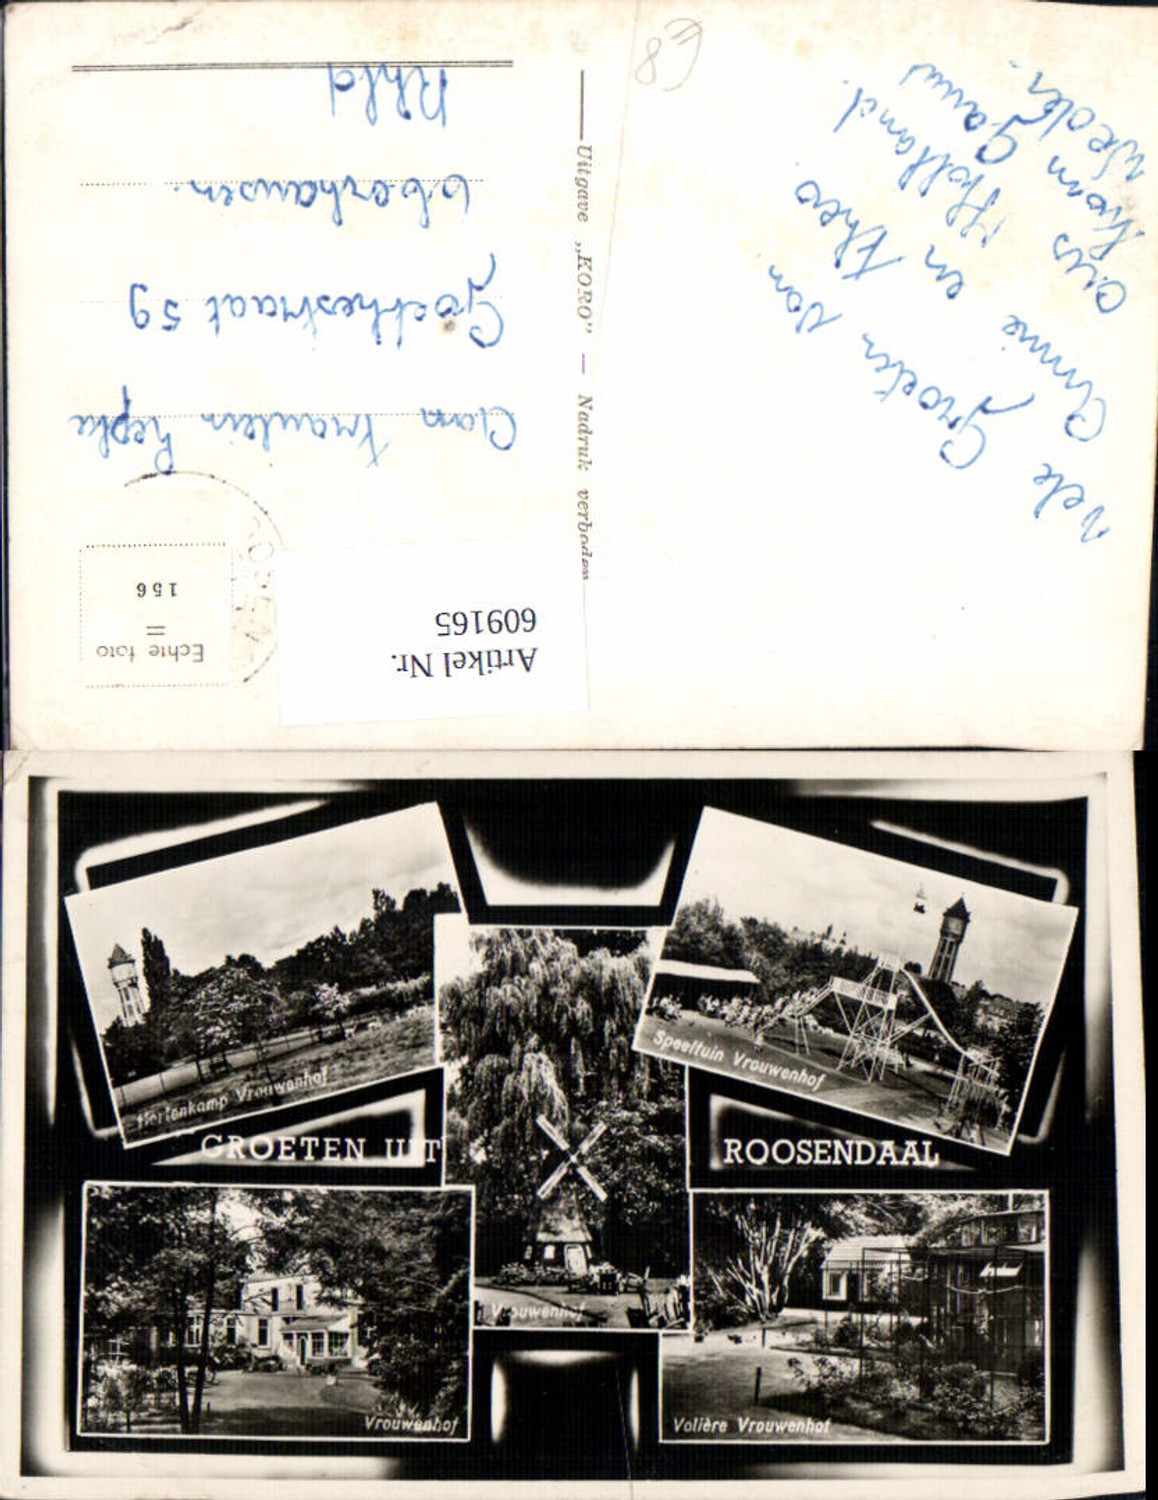 Vele Groeten van
Annie en Theo
uit Holland.
kom Gauw
Weder.
Uitgave „KORO” — Nadruk verboden
Echte foto
=
156
Artikel Nr.
609165
Aan Fraulein
Goethestraat 59
Oberhausen.
Rhld
Hertenkamp Vrouwenhof
Speeltuin Vrouwenhof
GROETEN UIT ROOSENDAAL
Vrouwenhof
Vrouwenhof
Volière Vrouwenhof